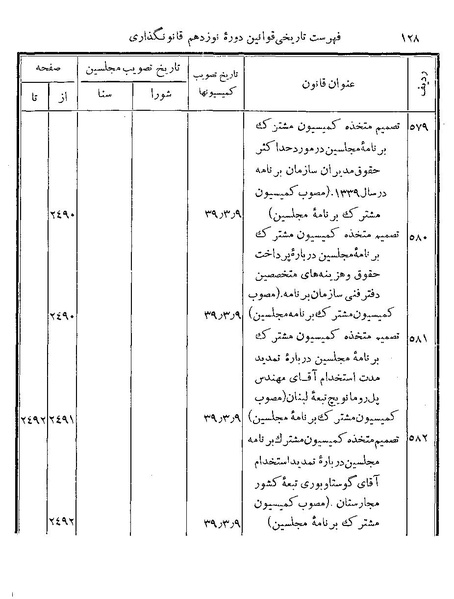 ۱۲۸ فهرست تاریخی قوانین دورهٔ نوزدهم قانونگذاری
ردیف عنوان قانون تاریخ تصویب کمیسیونها تاریخ تصویب مجلسین صفحه
شورا سنا از تا
۵۷۹ تصمیم متخذه کمیسیون مشترک
برنامهٔ مجلسین در مورد حداکثر
حقوق مدیران سازمان برنامه
در سال ۱۳۳۹. (مصوب کمیسیون
مشترک برنامهٔ مجلسین) ۳۹٫۳٫۹ ۲٤۹۰
۵۸۰ تصمیم متخذه کمیسیون مشترک
برنامهٔ مجلسین دربارهٔ پرداخت
حقوق و هزینه‌های متخصصین
دفتر فنی سازمان برنامه. (مصوب
کمیسیون مشترک برنامه مجلسین) ۳۹٫۳٫۹ ۲٤۹۰
۵۸۱ تصمیم متخذه کمیسیون مشترک
برنامهٔ مجلسین دربارهٔ تمدید
مدت استخدام آقای مهندس
پل رومانویچ تبعهٔ لبنان (مصوب
کمیسیون مشترک برنامهٔ مجلسین) ۳۹٫۳٫۹ ۲٤۹۱ ۲٤۹۲
۵۸۲ تصمیم متخذه کمیسیون مشترک برنامه
مجلسین دربارهٔ تمدید استخدام
آقای گوستاو بوری تبعهٔ کشور
مجارستان. (مصوب کمیسیون
مشترک برنامهٔ مجلسین) ۳۹٫۳٫۹ ۲٤۹۲